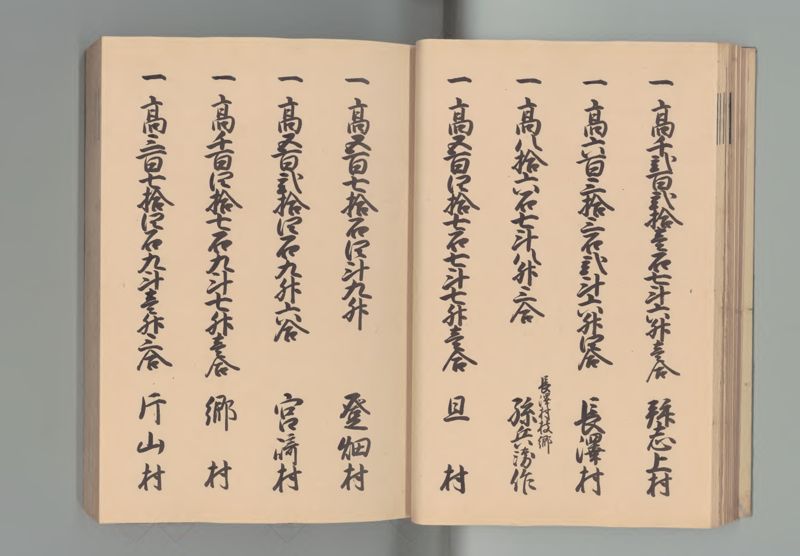 一 高千弐百弐拾壱石七斗六升壱合 弥志上村
一 高六百三拾三石弐斗六升四合 長澤村
一 高八拾六石七斗八升三合 長澤村枝郷 孫兵衛作
一 高五百四拾七石七斗七升壱合 且村
一 高五百七拾石四斗九升 登畑村
一 高五百弐拾四石九升六合 宮﨑村
一 高千百四拾七石九斗七升壱合 郷村
一 高三百七拾四石九斗壱升三合 片山村